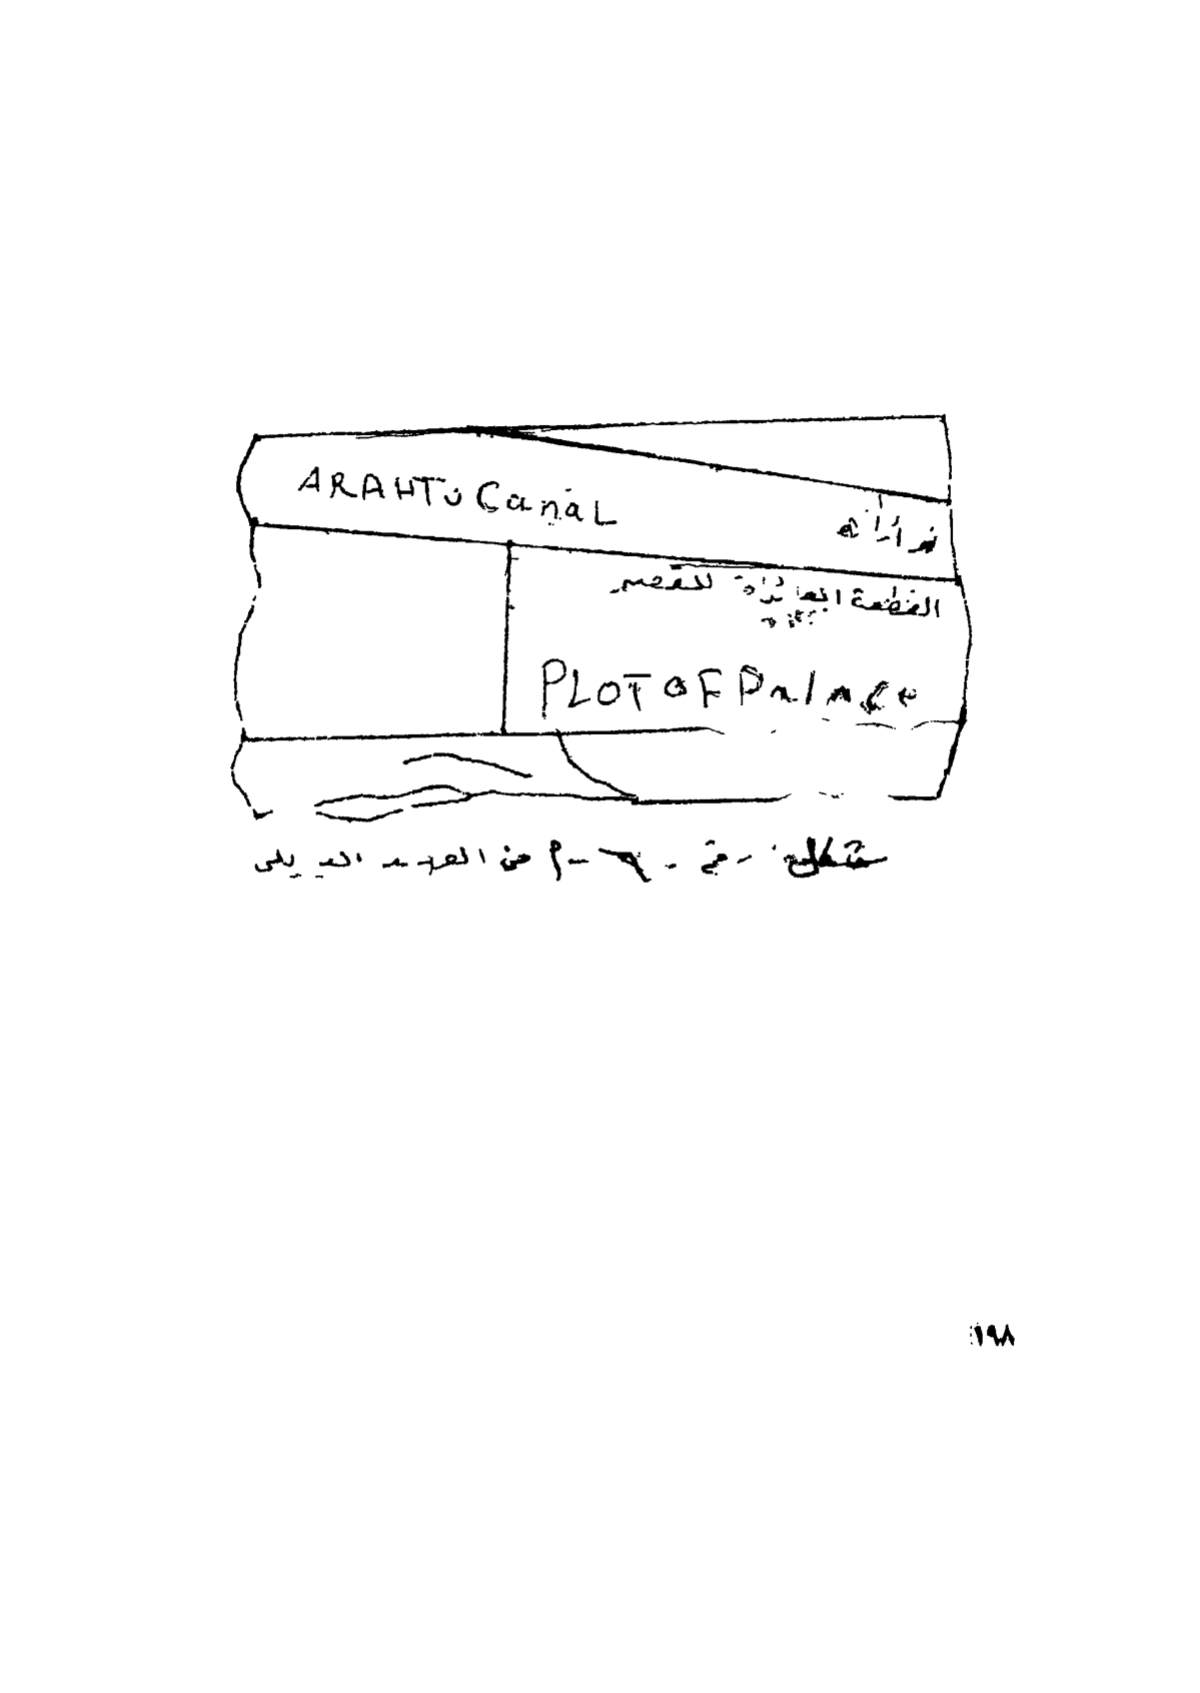 ARAHTU Canal
القطعة العائدة للقصر
PLOT OF Palace
شكل رقم - ٦ - ٩ من العهد البابلي
١٩٨